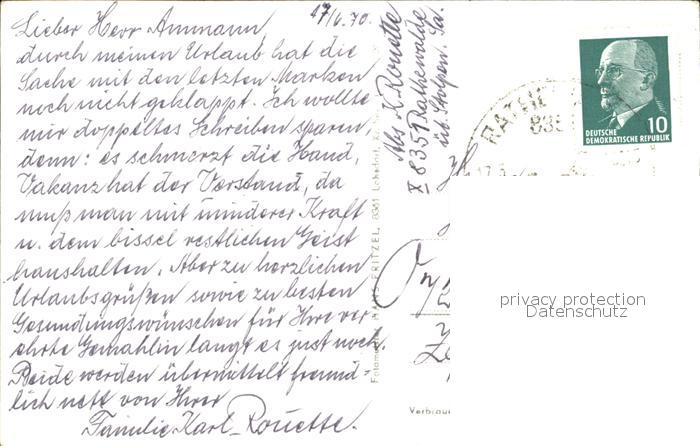 17/6.70.
Lieber Herr Ammann,
durch meinen Urlaub hat die
Sache mit den letzten Marken
noch nicht geklappt. Ich wollte
mir doppeltes Schreiben sparen
denn: es schmerzt die Hand,
Vakanz hat der Verstand, da
muß man mit minderer Kraft
u. dem bissel restlichen Geist
haushalten. Aber zu herzlichen
Urlaubsgrüßen sowie zu besten
Gesundungswünschen für Ihre ver
ehrte Gemahlin langt es just noch.
Beide werden übermittelt freund-
lich nett von Ihrer
Familie Karl-Rouette.
Abs K. Rouette
X 8351 Rathewalde
üb. Stolpen. Sa.
HANS FRITZEL, 8351
Verbrau
RATHE
835
17.6
10
DEUTSCHE
DEMOKRATISCHE REPUBLIK
privacy protection
Datenschutz